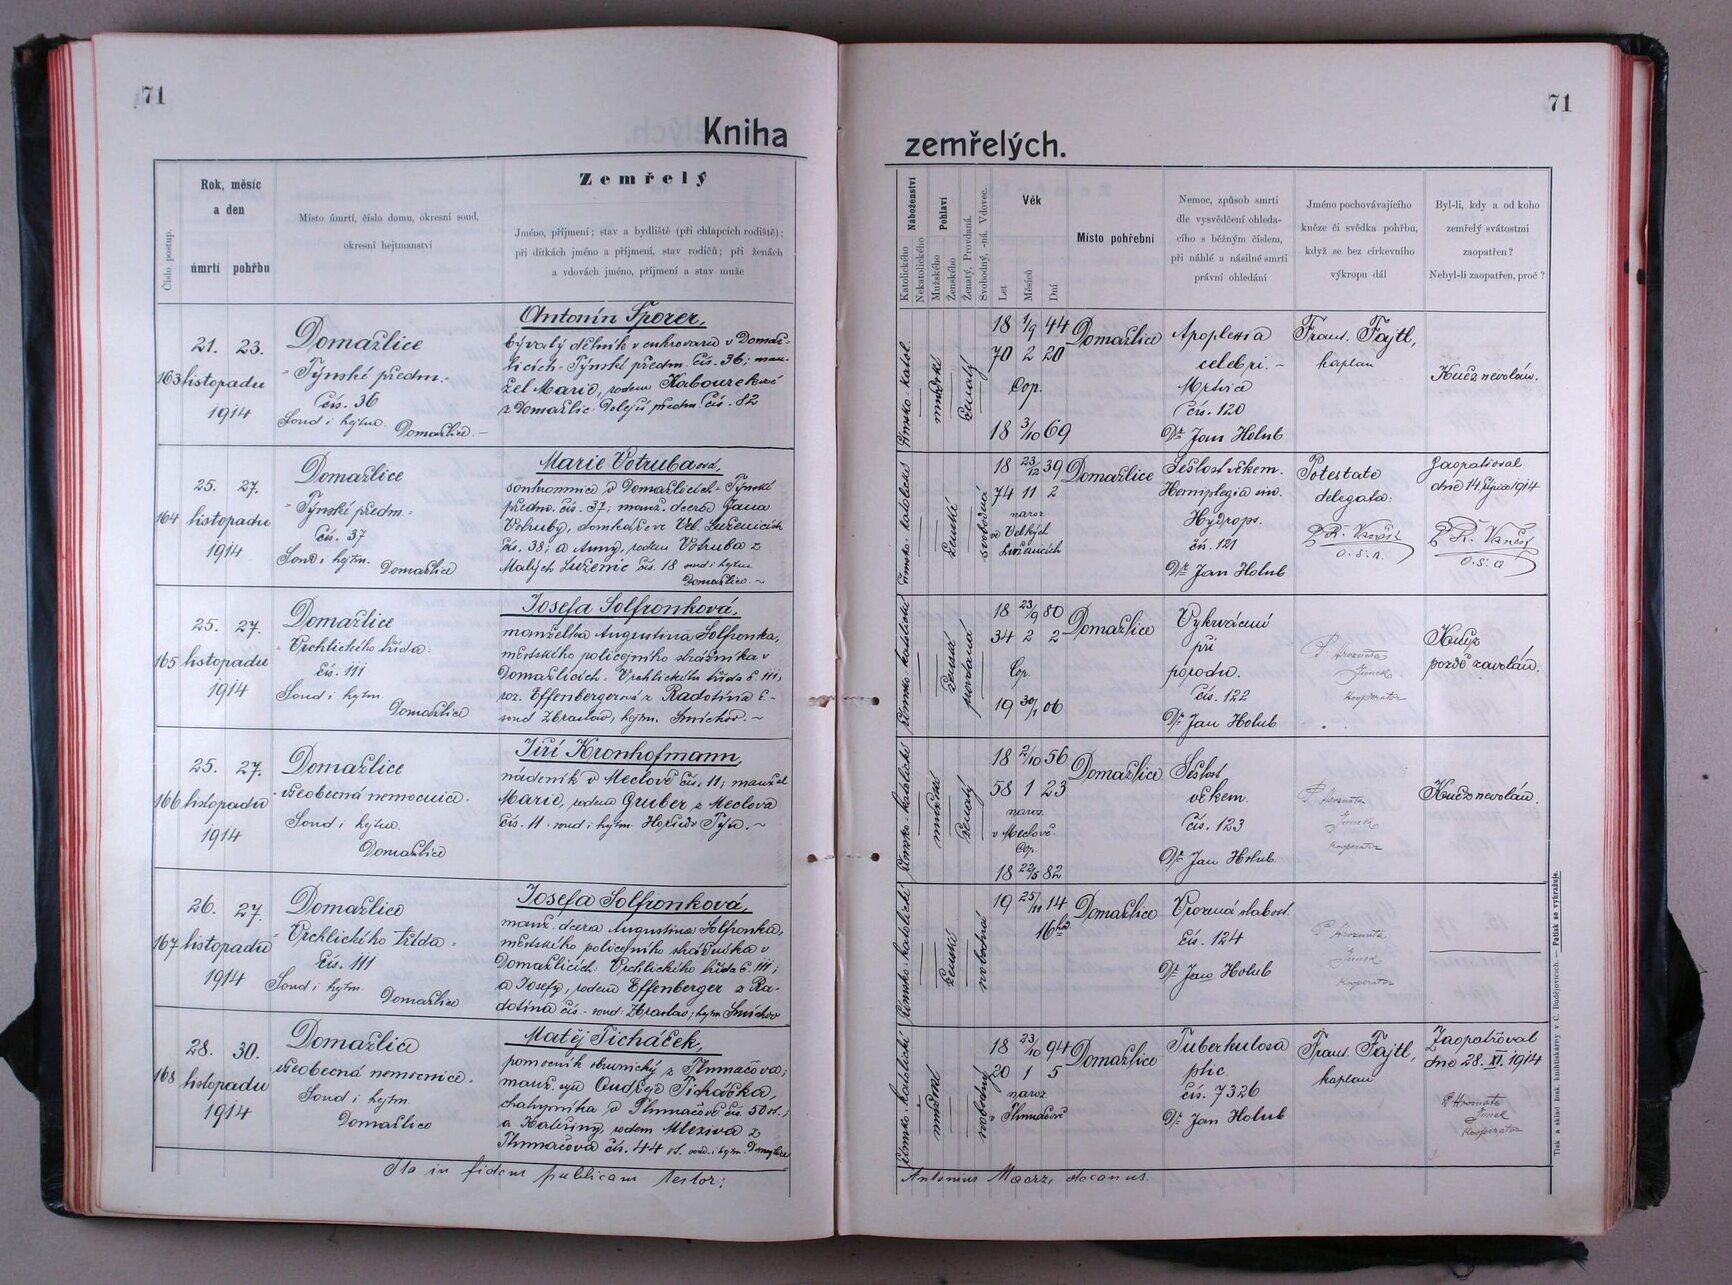 71
71
Kniha
zemřelých.
Číslo postup.
Rok, měsíc
a den
úmrtí pohřbu
Místo úmrtí, číslo domu, okresní soud,
okresní hejtmanství
Zemřelý
Jméno, příjmení; stav a bydliště (při chlapcích rodiště);
při dítkách jméno a příjmení, stav rodičů; při ženách
a vdovách jméno, příjmení a stav muže
Náboženství
Katolického
Nekatolického
Pohlaví
Mužského
Ženského
Ženatý, Provdaná.
Svobodný, -ná. Vdovec.
Věk
Let
Měsíců
Dní
Místo pohřební
Nemoc, způsob smrti
dle vysvědčení ohleda-
cího s běžným číslem,
při náhlé a násilné smrti
právní ohledání
Jméno pochovávajícího
kněze či svědka pohřbu,
když se bez církevního
výkropu dál
Byl-li, kdy a od koho
zemřelý svátostmi
zaopatřen?
Nebyl-li zaopatřen, proč?
163
21. 23.
listopadu
1914
Domažlice
Týnské předm.
čís. 36
Soud i hejtm. Domažlice.
Antonín Sporer,
bývalý dělník v cukrovaru v Domaž-
licích Týnské předm. čís. 36; man-
žel Marie, rodem Kabourekové
z Domažlic Dolejší předm. čís. 82
římsko-katol.
mužské
ženatý
18 1/9 44
70 2 20
Cop.
18 3/10 69
Domažlice
Apoplexia
celebri.
Mrtvice
čís. 120
Dr. Jan Holub
Frant. Fajtl,
kaplan
Kněz nevolán.
164
25. 27.
listopadu
1914
Domažlice
Týnské předm.
čís. 37
Soud i hejtm. Domažlice
Marie Votrubaová,
soukromnice v Domažlicích Týnské
předm. čís. 37; manž. dcera Jana
Votruby, domkáře ve Vel. Luženicích
čís. 38; a Anny, rodem Votruba z
Malých Luženic čís. 18 soud i hejtm.
Domažlice.
římsko-katolické
ženské
svobodná
18 23/12 39
74 11 2
naroz.
z Velkých
Domažlice
Sešlost věkem.
Hemiplegia sin.
Hydrops.
čís. 121
Dr. Jan Holub
Potestate
delegata:
O.S.A.
Zaopatřoval
dne 14. 1914
O.S.A.
165
25. 27.
listopadu
1914
Domažlice
Vrchlického třída
čís. 111
Soud i hejtm.
Domažlice
Josefa Solfronková,
manželka Augustina Solfronka,
městského policejního strážníka v
Domažlicích. Vrchlického třída č. 111;
roz. Effenbergerová z Radotína č.
soud Zbraslav, hejtm. Smíchov.
římsko-katolické
ženské
provdaná
18 23/9 80
34 2 2
Cop.
19 30/1 06
Domažlice
Vykrvácení
při
porodu.
čís. 122
Dr. Jan Holub
P. Hroznata
Kooperator
Kněz
pozdě zavolán.
166
25. 27.
listopadu
1914
Domažlice
všeobecná nemocnice.
Soud i hejtm.
Domažlice
Jiří Kronhofmann,
nádeník v Meclově čís. 11; manžel
Marie, rodem Gruber z Meclova
čís. 11. soud i hejtm. Horšův Týn.
římsko-katolické
mužské
ženatý
18 2/10 56
58 1 23
naroz.
v Meclově
Cop.
18 22/5 82
Domažlice
Sešlost
věkem.
čís. 123
Dr. Jan Holub
P. Hroznata
kooperator
Kněz nevolán.
167
26. 27.
listopadu
1914
Domažlice
Vrchlického třída
čís. 111
Soud i hejtm.
Domažlice
Josefa Solfronková,
manž. dcera Augustina Solfronka,
městského policejního strážníka v
Domažlicích Vrchlického třída č. 111;
a Josefy, rodem Effenberger z Ra-
dotína čís. - soud: Zbraslav; hejtm. Smíchov
římsko-katolické
ženské
svobodná
19 25/11 14
16 hod.
Domažlice
Vrozená slabost.
čís. 124
Dr. Jan Holub
P. Hroznata
Kooperator
168
28. 30.
listopadu
1914
Domažlice
všeobecná nemocnice.
Soud i hejtm.
Domažlice
Matěj Ticháček,
z Tlumačova;
manž. syn Ondřeje Ticháčka,
chalupníka v Tlumačově čís. 50 st.;
a Kateřiny, rodem Mleziva z
Tlumačova čís. 44 st. soud i hejtm. Domažlice
římsko-katolické
mužské
svobodný
18 23/10 94
20 1 5
naroz.
v Tlumačově
Domažlice
Tuberkulosa
plic.
čís. 7326
Dr. Jan Holub
Frant. Fajtl,
kaplan
Zaopatřoval
dne 28. XI. 1914
P. Hroznata
Kooperator
Ita in fidem publicam testor:
Antonius Maerz, decanus.
Tisk a sklad bisk. knihtiskárny v Č. Budějovicích. — Patisk se vyhražuje.